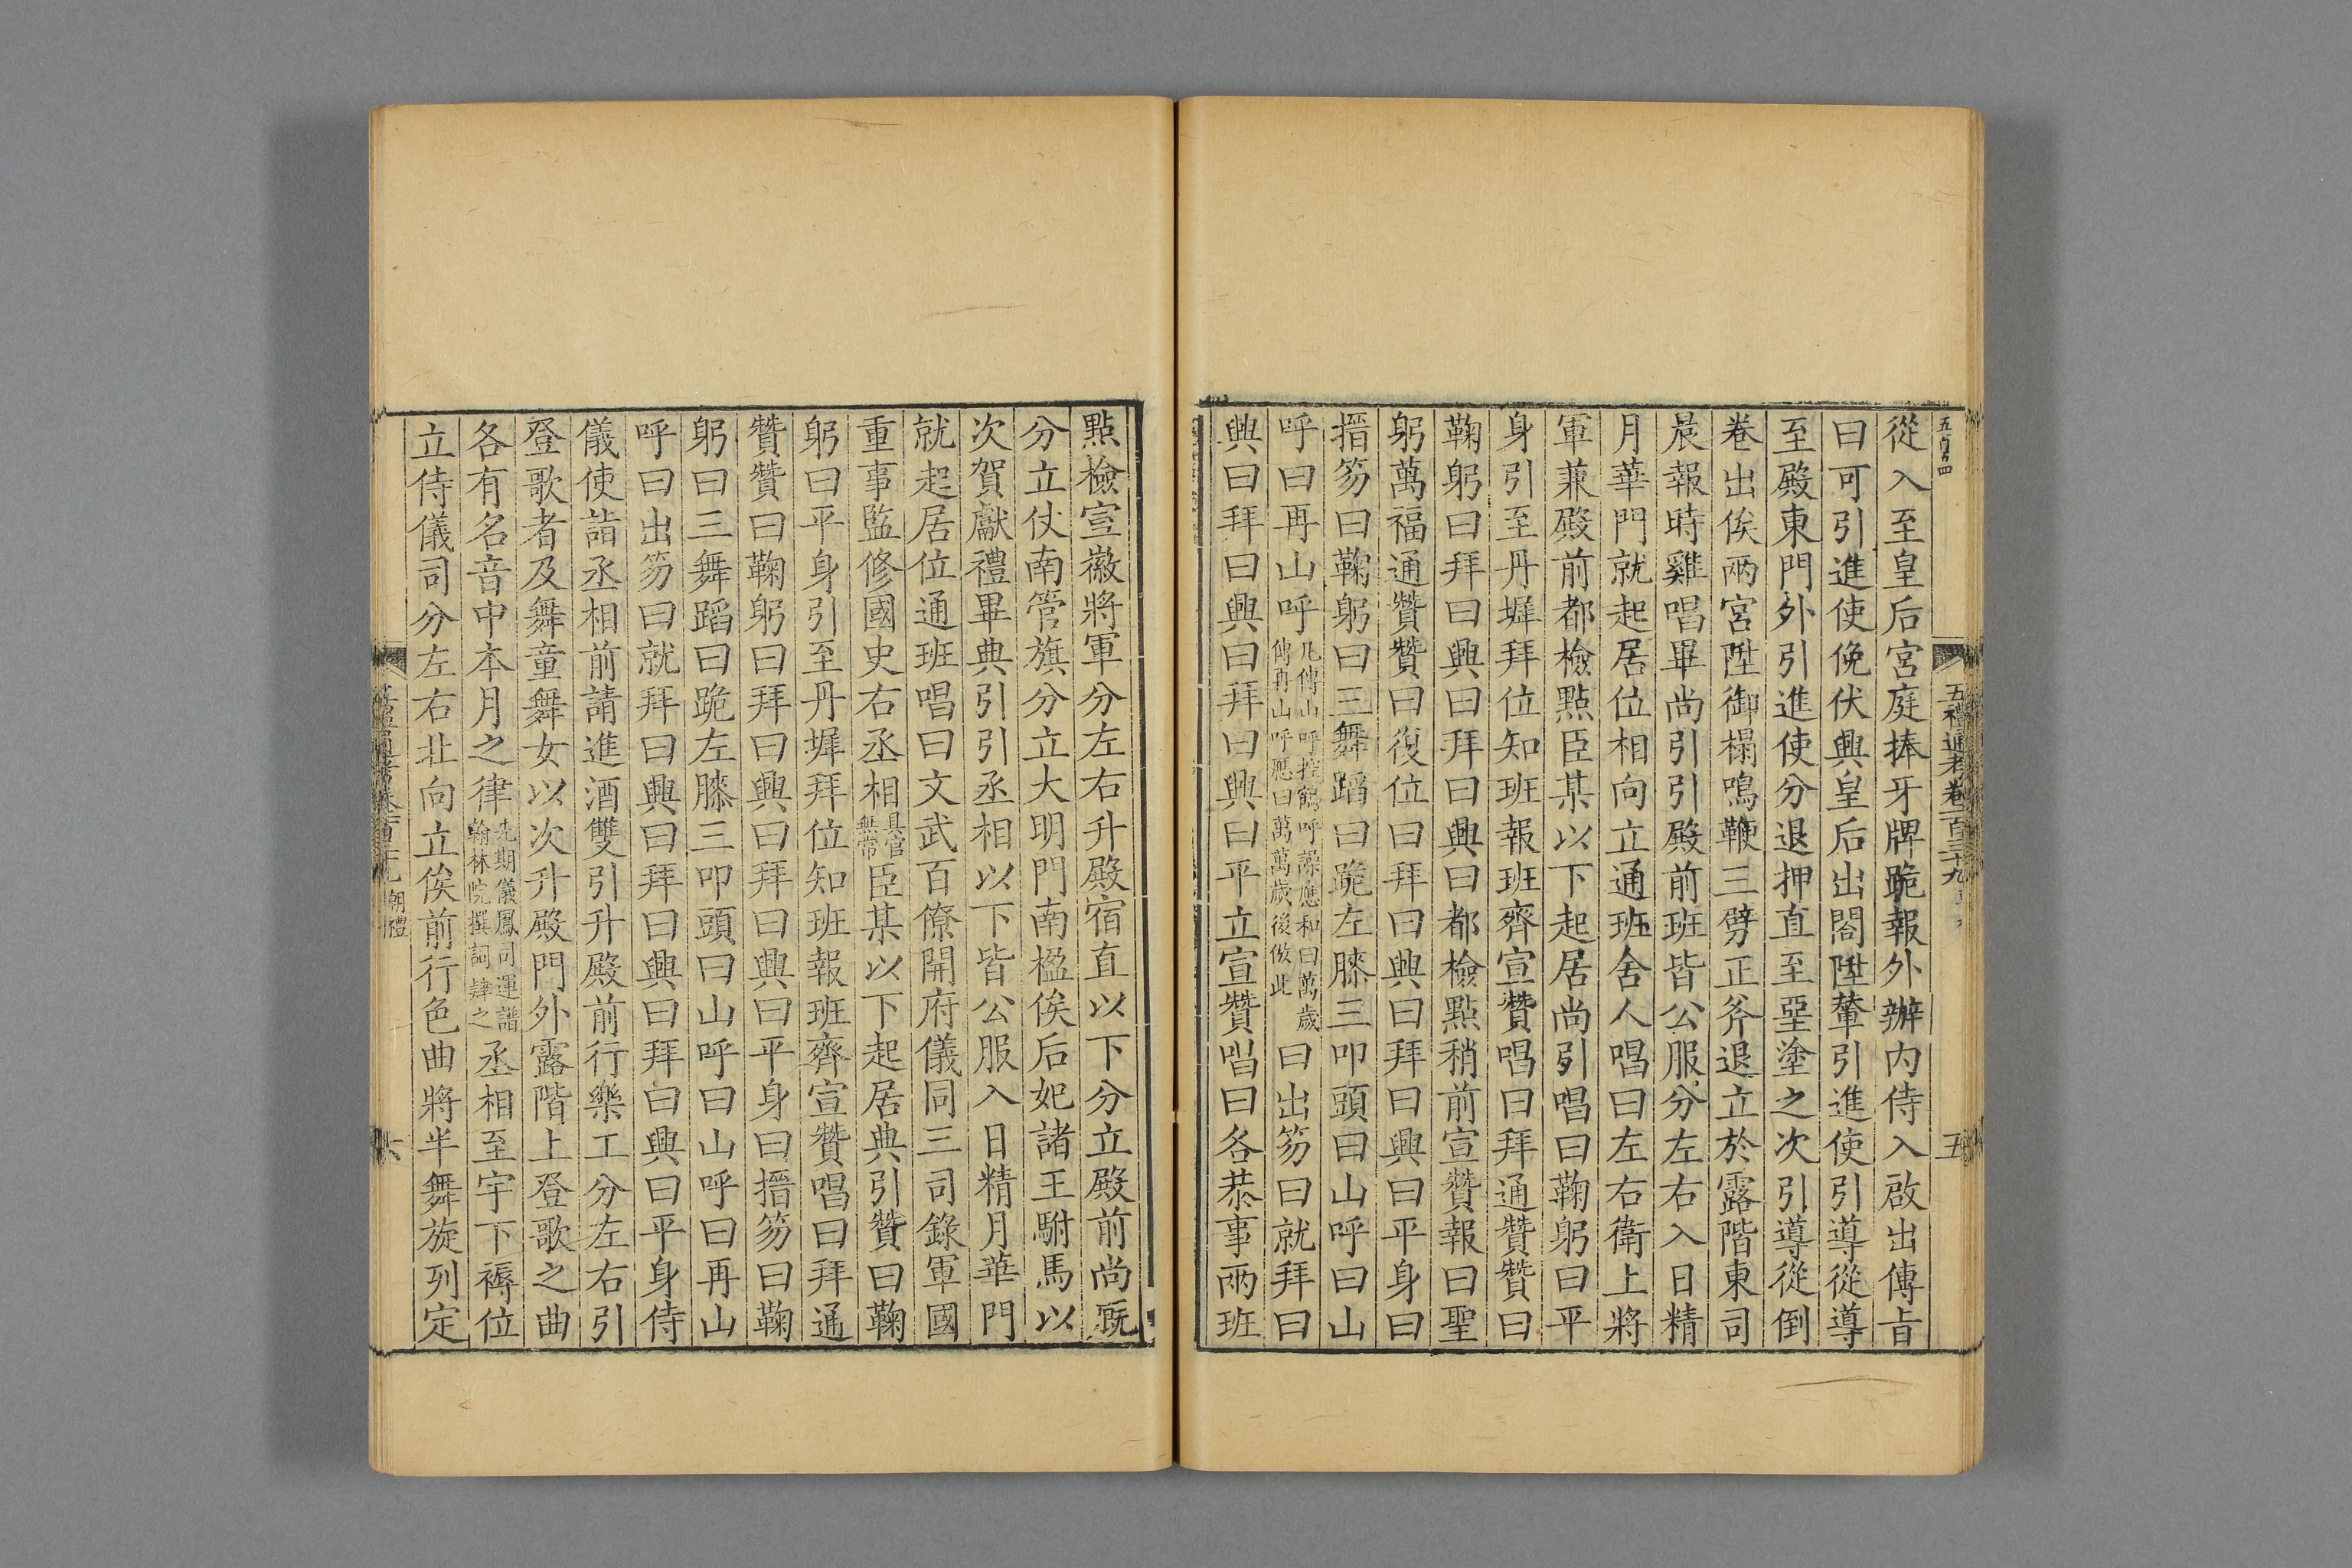 五百四
五禮通考卷一百三十九
五
從入至皇后宮庭捧牙牌跪報外辦內侍入啟出傳旨
曰可引進使俛伏興皇后出閤陞輦引進使引導從導
至殿東門外引進使分退押直至堊塗之次引導從倒
卷出俟兩宮陞御榻鳴鞭三劈正斧退立於露階東司
晨報時雞唱畢尚引引殿前班皆公服分左右入日精
月華門就起居位相向立通班舍人唱曰左右衛上將
軍兼殿前都檢點臣某以下起居尚引唱曰鞠躬曰平
身引至丹墀拜位知班報班齊宣贊唱曰拜通贊贊曰
鞠躬曰拜曰興曰拜曰興曰都檢點稍前宣贊報曰聖
躬萬福通贊贊曰復位曰拜曰興曰拜曰興曰平身曰
搢笏曰鞠躬曰三舞蹈曰跪左膝三叩頭曰山呼曰山
呼曰再山呼凡傳山呼控鶴呼譟應和曰萬歲傳再山呼應曰萬萬歲後倣此曰出笏曰就拜曰
興曰拜曰興曰拜曰興曰平立宣贊唱曰各恭事兩班
點檢宣徽將軍分左右升殿宿直以下分立殿前尚廐
分立仗南管旗分立大明門南楹俟后妃諸王駙馬以
次賀獻禮畢典引引丞相以下皆公服入日精月華門
就起居位通班唱曰文武百僚開府儀同三司錄軍國
重事監修國史右丞相具官無常臣某以下起居典引贊曰鞠
躬曰平身引至丹墀拜位知班報班齊宣贊唱曰拜通
贊贊曰鞠躬曰拜曰興曰拜曰興曰平身曰搢笏曰鞠
躬曰三舞蹈曰跪左膝三叩頭曰山呼曰山呼曰再山
呼曰出笏曰就拜曰興曰拜曰興曰拜曰興曰平身侍
儀使詣丞相前請進酒雙引升殿前行樂工分左右引
登歌者及舞童舞女以次升殿門外露階上登歌之曲
各有名音中本月之律先期儀鳳司運譜翰林院撰詞肄之丞相至宇下褥位
立侍儀司分左右北向立俟前行色曲將半舞旋列定
朝禮
六